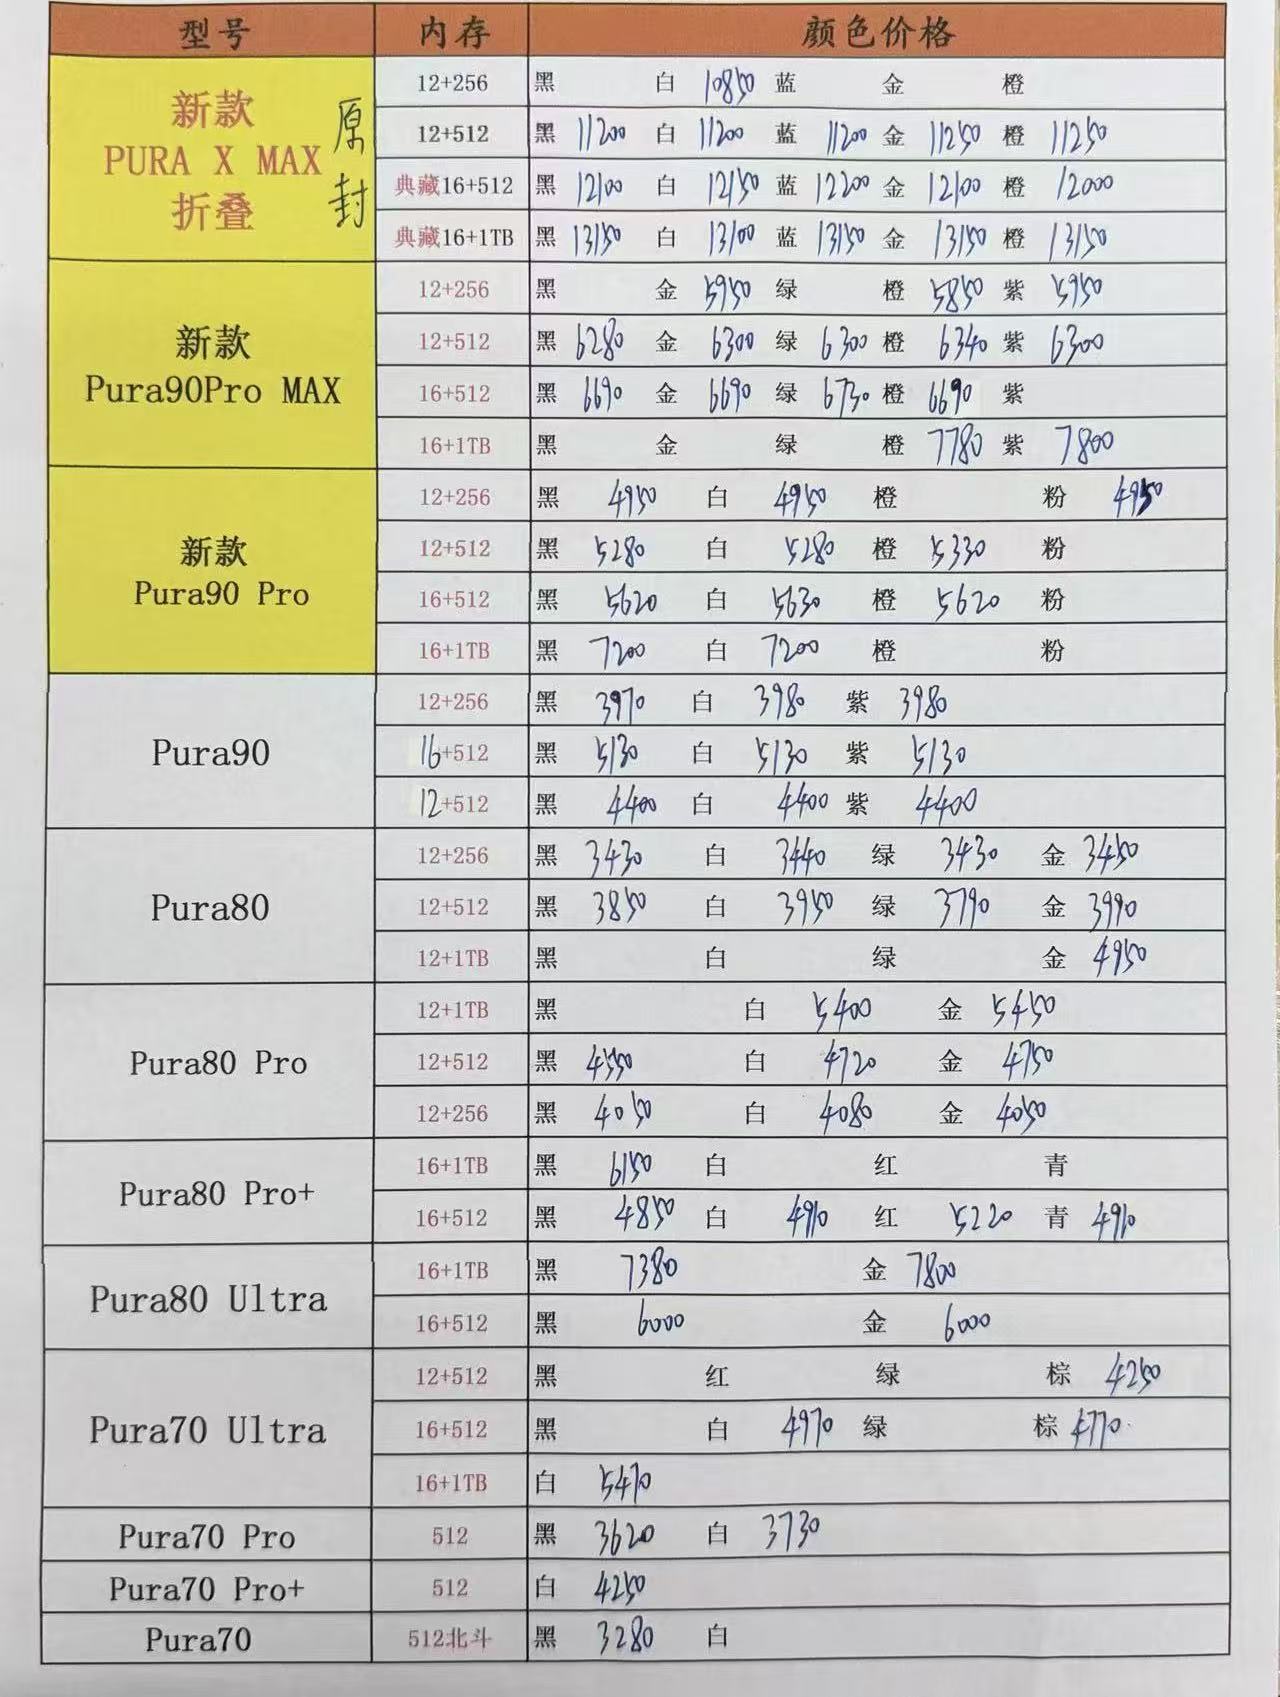 型号 内存 颜色价格
新款 PURA X MAX 折叠 原封
12+256 黑 白 10850 蓝 金 橙
12+512 黑 11200 白 11200 蓝 11200 金 11250 橙 11250
典藏16+512 黑 12100 白 12150 蓝 12200 金 12100 橙 12000
典藏16+1TB 黑 13150 白 13100 蓝 13150 金 13150 橙 13150
新款 Pura90Pro MAX
12+256 黑 金 5950 绿 橙 5850 紫 5950
12+512 黑 6280 金 6300 绿 6300 橙 6340 紫 6300
16+512 黑 6690 金 6690 绿 6730 橙 6690 紫
16+1TB 黑 金 绿 橙 7780 紫 7800
新款 Pura90 Pro
12+256 黑 4950 白 4950 橙 粉 4950
12+512 黑 5280 白 5280 橙 5330 粉
16+512 黑 5620 白 5630 橙 5620 粉
16+1TB 黑 7200 白 7200 橙 粉
Pura90
12+256 黑 3970 白 3980 紫 3980
16+512 黑 5130 白 5130 紫 5130
12+512 黑 4400 白 4400 紫 4400
Pura80
12+256 黑 3430 白 3440 绿 3430 金 3450
12+512 黑 3850 白 3950 绿 3790 金 3990
12+1TB 黑 白 绿 金 4950
Pura80 Pro
12+1TB 黑 白 5400 金 5450
12+512 黑 4550 白 4720 金 4750
12+256 黑 4050 白 4080 金 4050
Pura80 Pro+
16+1TB 黑 6150 白 红 青
16+512 黑 4850 白 4910 红 5220 青 4910
Pura80 Ultra
16+1TB 黑 7380 金 7800
16+512 黑 6000 金 6000
Pura70 Ultra
12+512 黑 红 绿 棕 4250
16+512 黑 白 4970 绿 棕 4770
16+1TB 白 5470
Pura70 Pro 512 黑 3620 白 3730
Pura70 Pro+ 512 白 4250
Pura70 512北斗 黑 3280 白